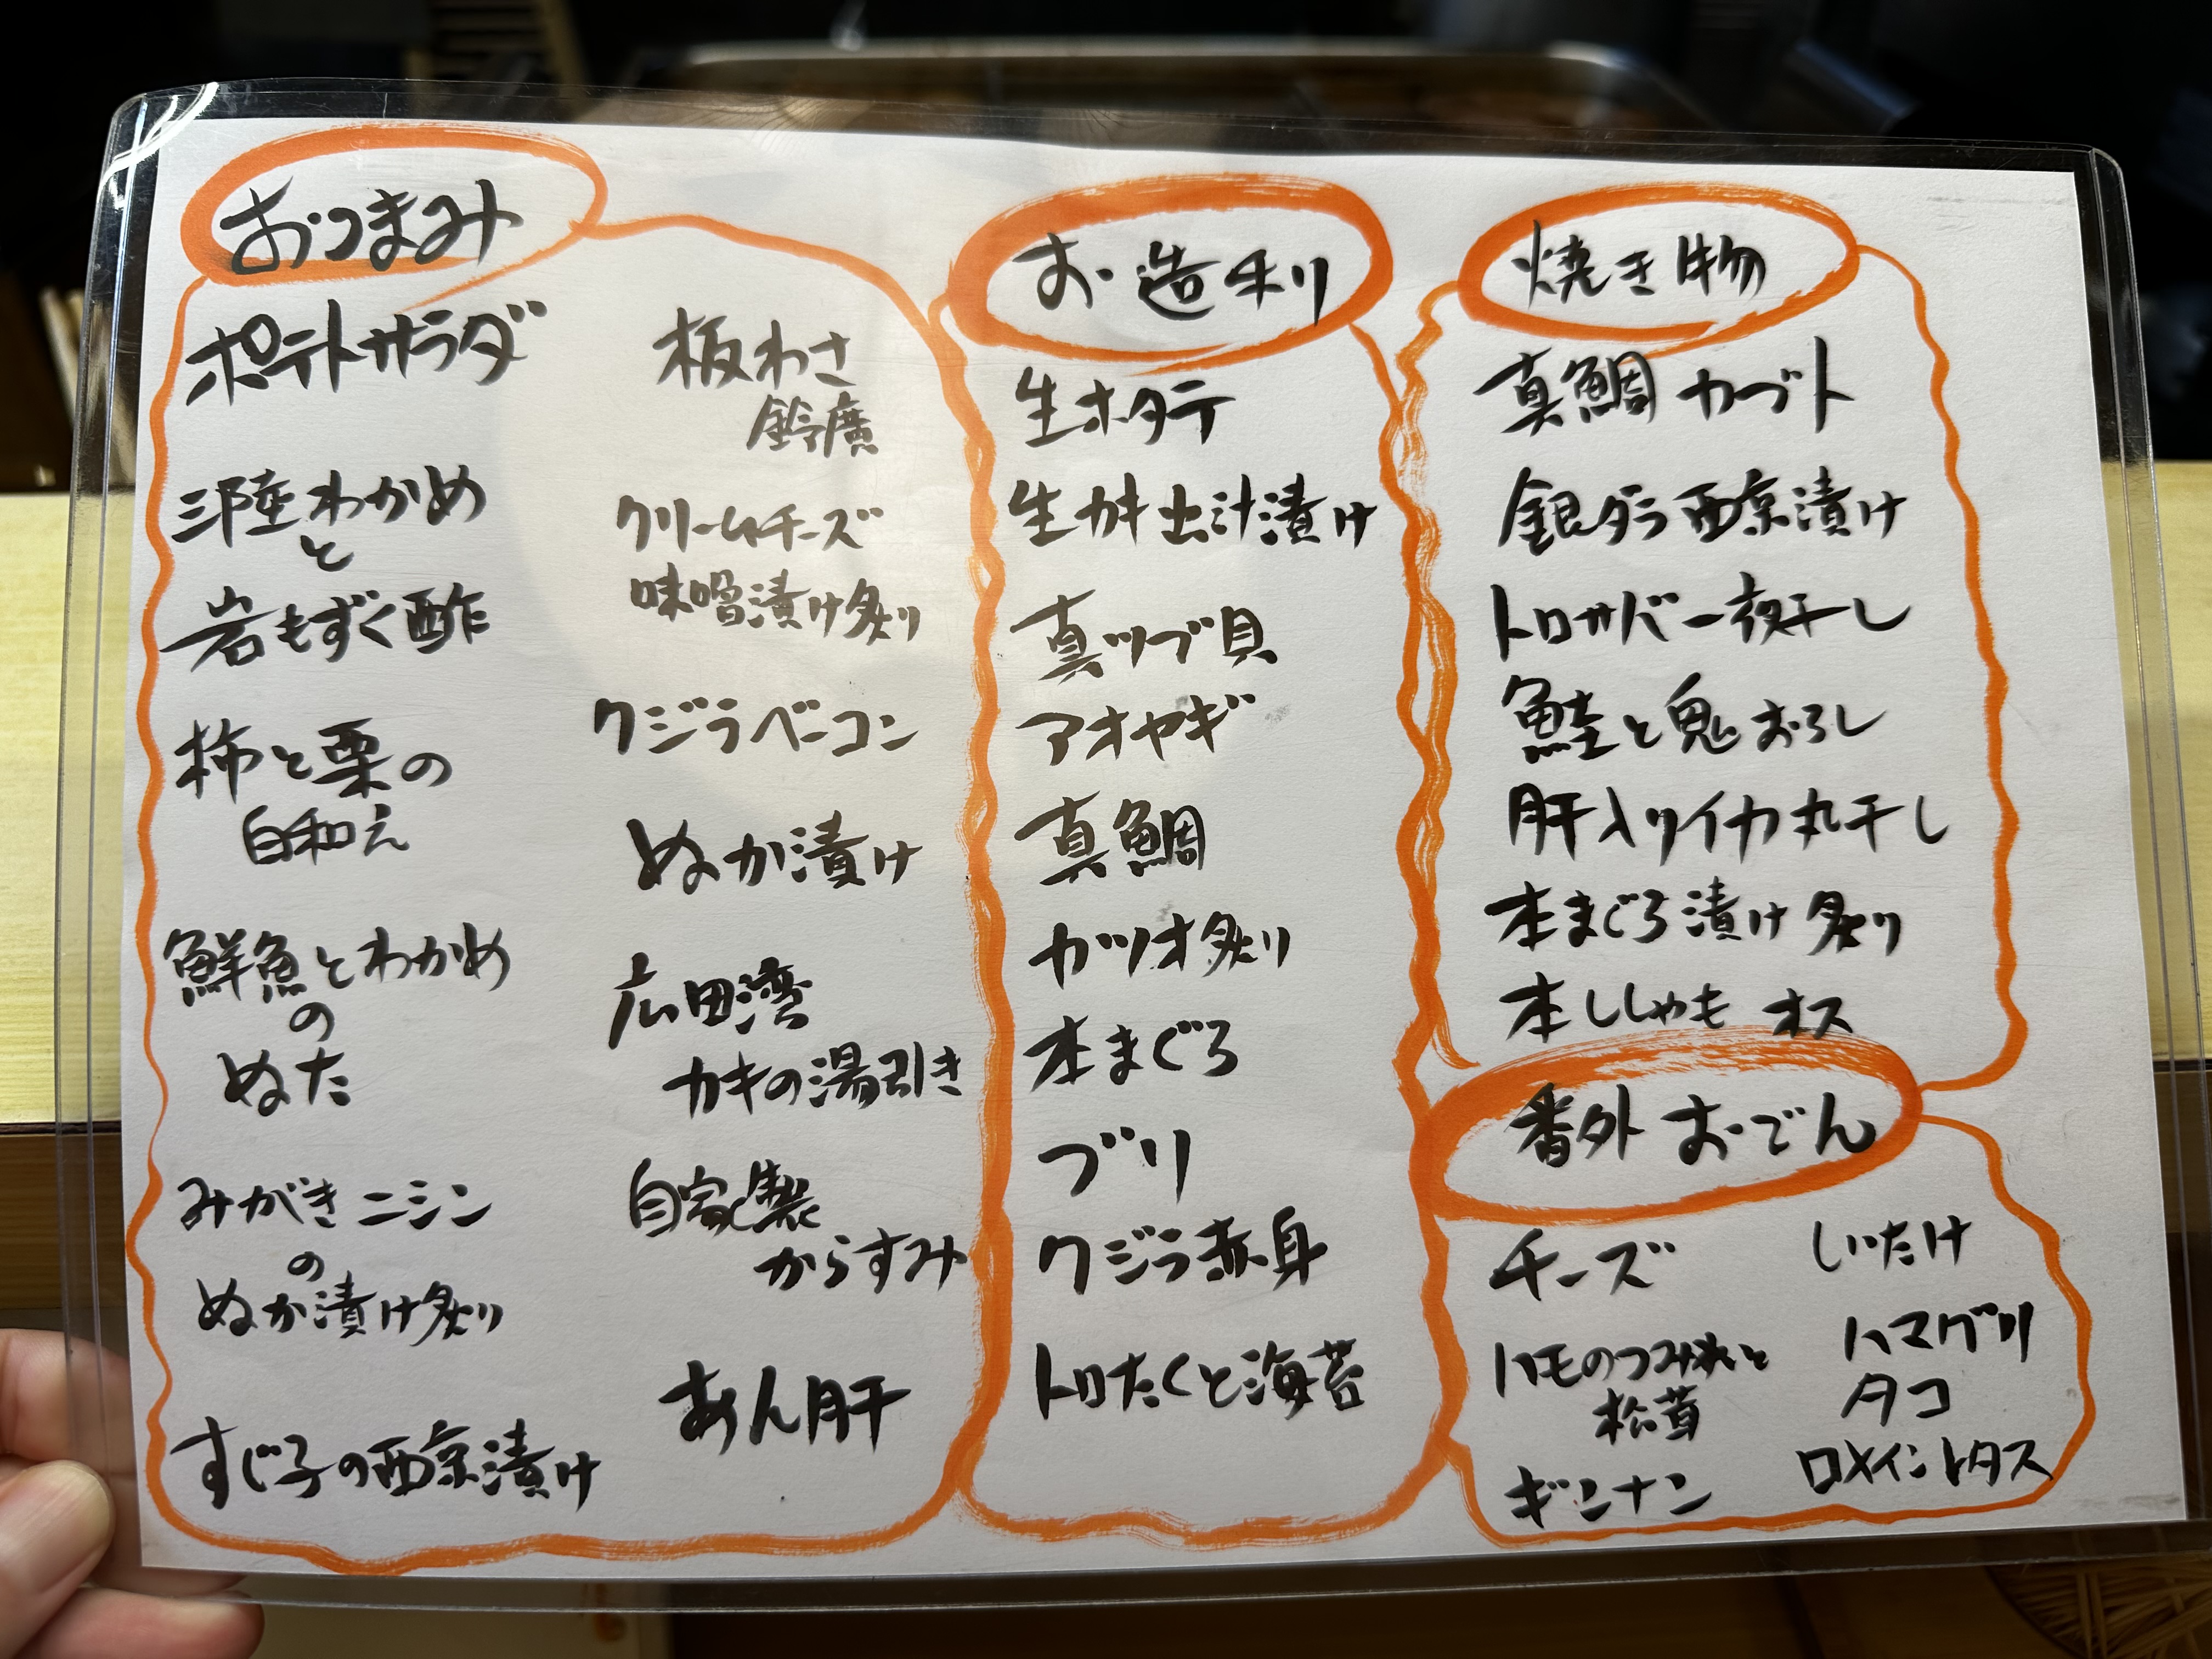 おつまみ
ポテトサラダ
三陸わかめ
と
岩もずく酢
柿と栗の
白和え
鮮魚とわかめ
の
ぬた
みがきニシン
の
ぬか漬け炙り
すじ子の西京漬け
板わさ
鈴廣
クリームチーズ
味噌漬け炙り
クジラベーコン
ぬか漬け
広田湾
カキの湯引き
自家製
からすみ
あん肝
お造り
生ホタテ
生カキ出汁漬け
真ツブ貝
アオヤギ
真鯛
カツオ炙り
本まぐろ
ブリ
クジラ赤身
トロたくと海苔
焼き物
真鯛カブト
銀ダラ西京漬け
トロサバ一夜干し
鮭と鬼おろし
肝入りイカ丸干し
本まぐろ漬け炙り
本ししゃも オス
番外おでん
チーズ
ハモのつみれと
松茸
ギンナン
しいたけ
ハマグリ
タコ
ロメインレタス